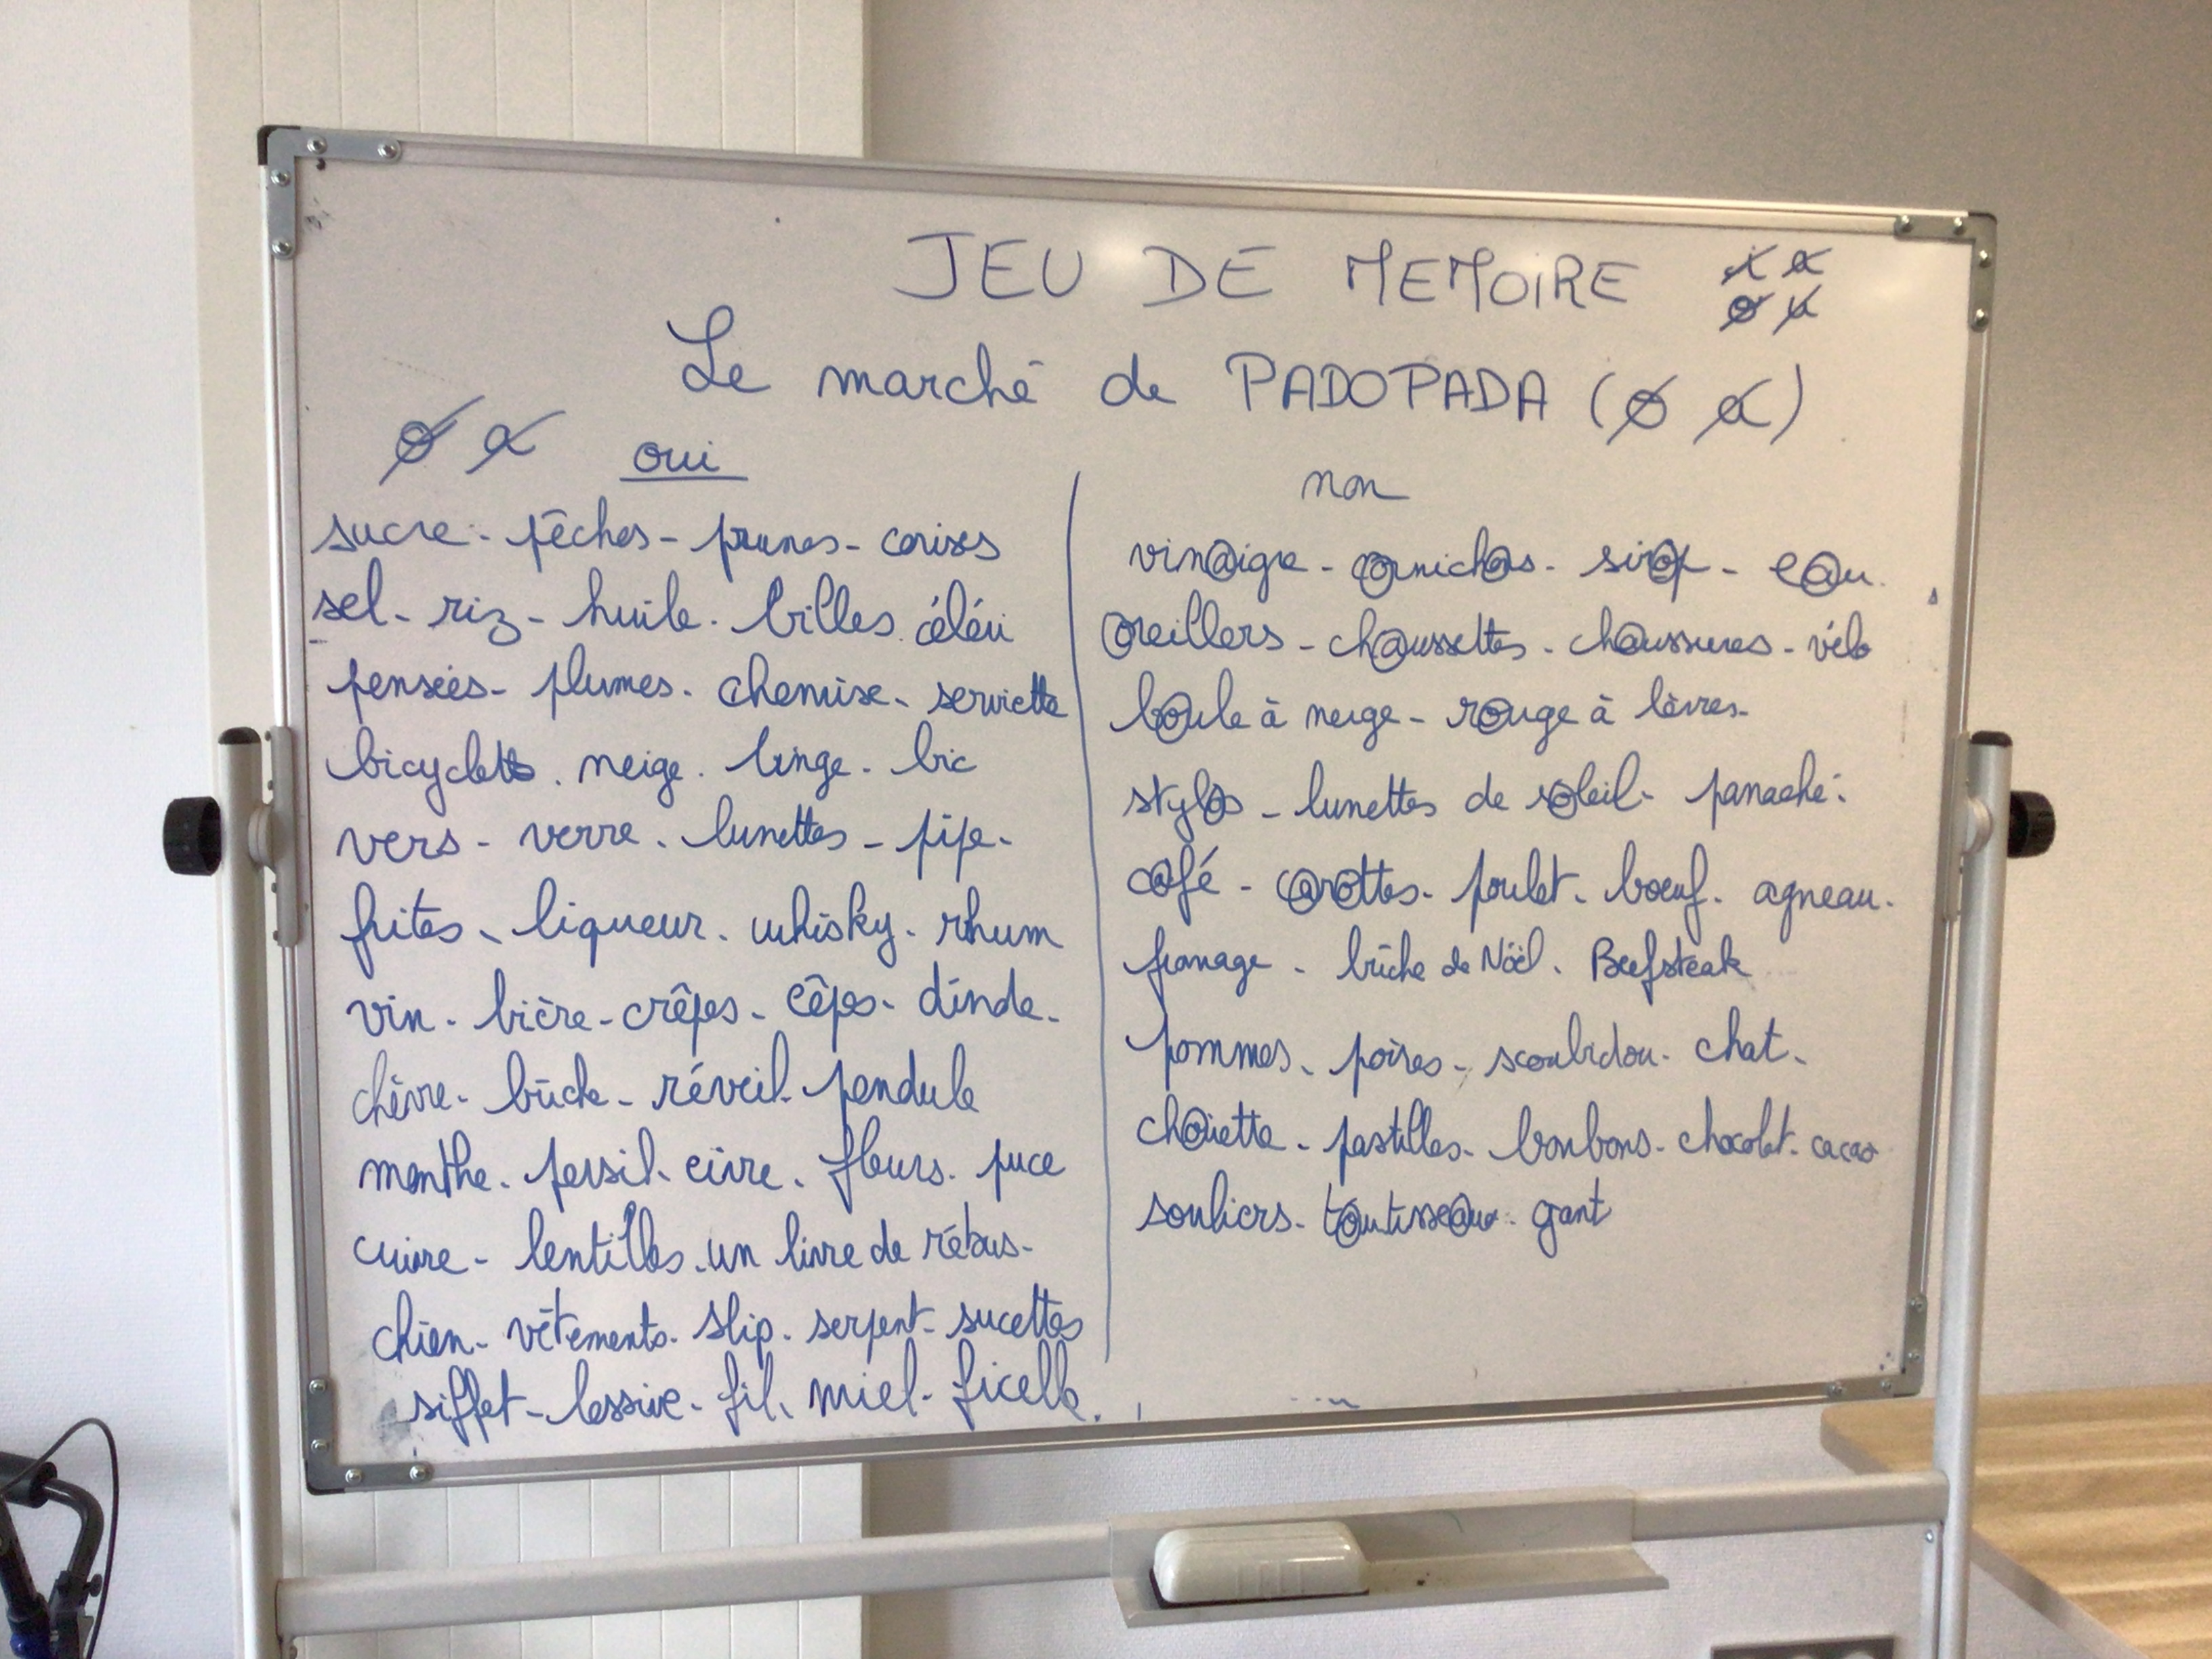 JEU DE MEMOIRE
Le marché de PADOPADA (O A)
O A oui
sucre - pêches - prunes - cerises
sel - riz - huile - billes céléri
pensées - plumes - chemise - serviette
bicyclette - neige - linge - bic
vers - verre - lunettes - pipe -
frites - liqueur - whisky - rhum
vin - bière - crêpes - cêpes - dinde -
chèvre - bûche - réveil - pendule
menthe - persil - cire - fleurs - puce
cuivre - lentilles - un livre de rébus -
chien - vêtements - slip - serpent - sucettes
sifflet - lessive - fil - miel - ficelle.
non
vinaigre - cornichons - sirop - eau.
oreillers - chaussettes - chaussures - vélo
boule à neige - rouge à lèvres -
stylos - lunettes de soleil - panaché -
café - carottes - poulet - boeuf - agneau -
fromage - bûche de Noël - Beefsteak
pommes - poires - scoubidou - chat -
chouette - pastilles - bonbons - chocolat - cacao
souliers - gant